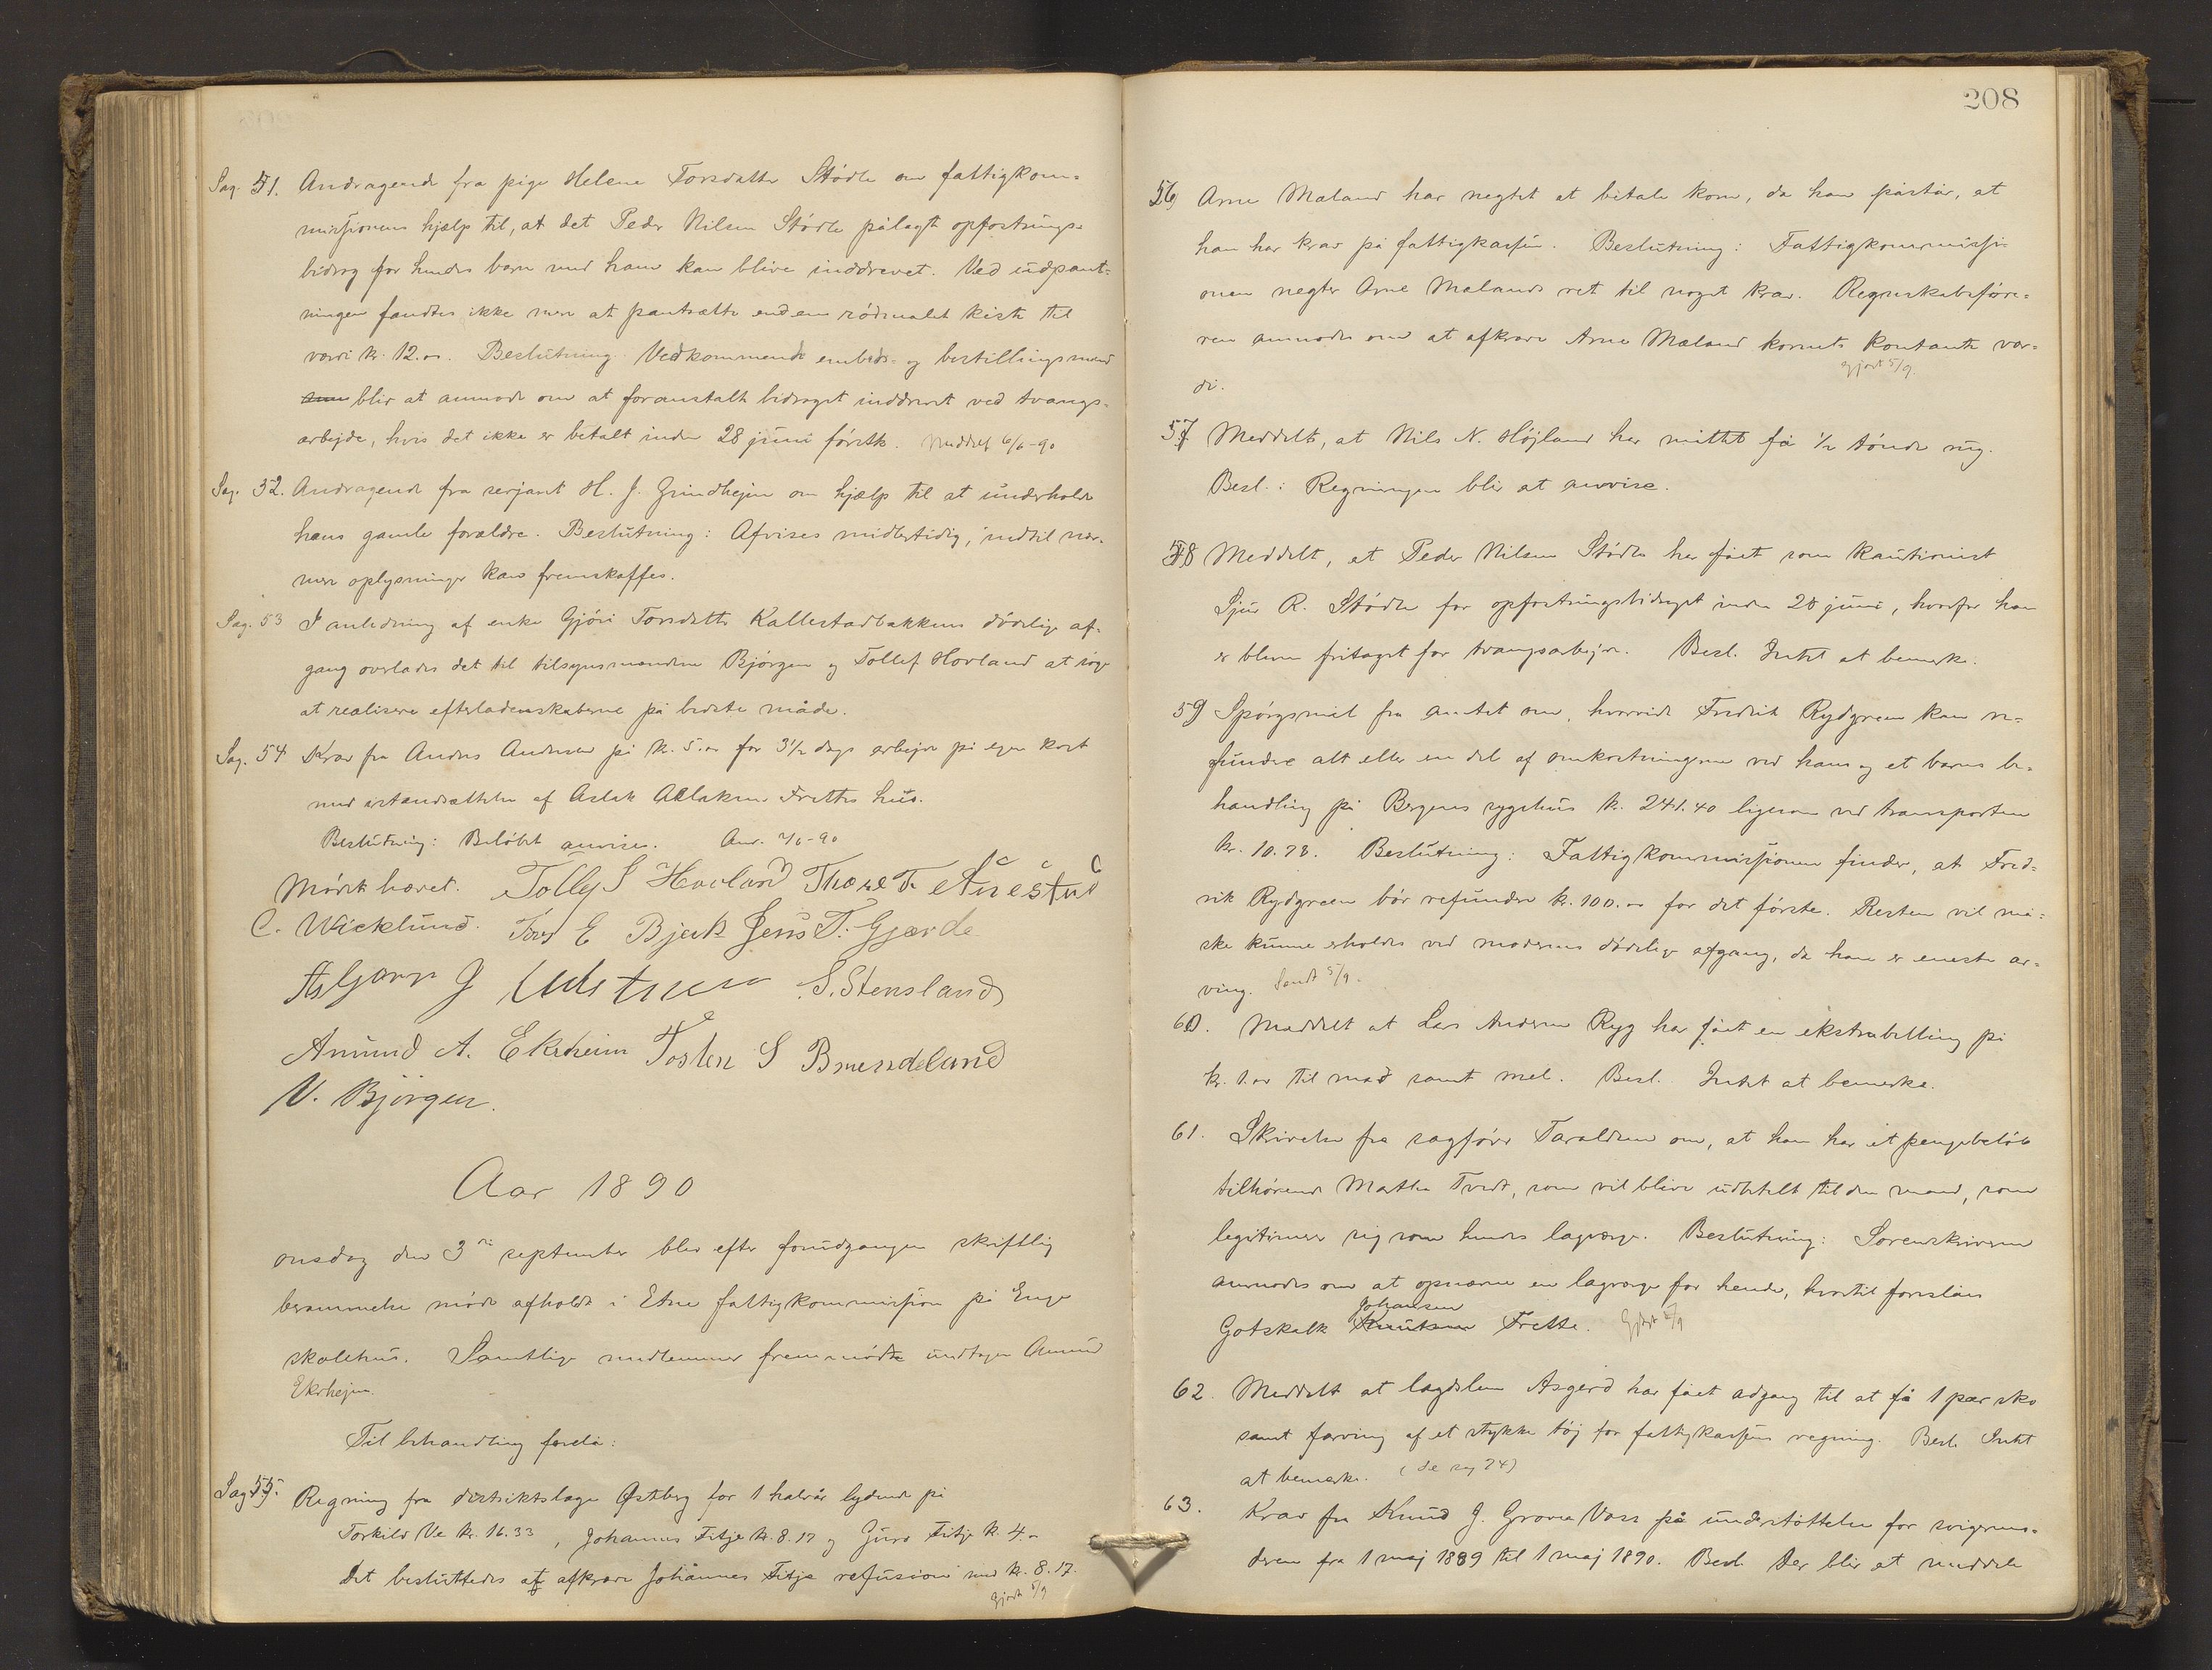 Sag. 51. Andragende fra pige Helene Torsdatter Stödle om fattigkom=
missionens hjælp til, at det Peder Nilsen Stödle pålagte opfostrings=
bidrag for hendes barn med ham kan blive inddrevet. Ved udpant=
ningen fandtes ikke mere at pantsætte end en rödmalet kiste til
værdi kr. 12.00. Beslutning: Vedkommende embeds- og bestillingsmænd
blir at anmode om at foranstalte bidraget inddrevet ved tvangs=
arbejde, hvis det ikke er betalt inden 28 juni förstk. Meddelt 6/6-90
Sag. 52. Andragende fra serjant H. J. Grindhejm om hjælp til at underholde
hans gamle forældre. Beslutning: Afvises midlertidig, indtil nær=
mere oplysninger kan fremskaffes.
Sag. 53 I anledning af enke Gjöri Torsdatter Kallestadbakkens dödelige af=
gang overlades det til tilsynsmændene Björgen og Tollef Hovland at söge
at realisere efterladenskaberne på bedste måde.
Sag. 54 Krav fra Anders Andersen på kr. 5.00 for 3 1/2 dags arbejde på egen kost
med istandsættelse af Aslak Aslaksen Frettes hus.
Beslutning: Belöbet anvises. Anv. 7/6-90
Mödet hævet. Tollef S Hovland Thore T. Anestad
C. Wicklund. Tord E Bjerk Jens T. Gjærde
Asbjørn J S. Stensland
Amund A. Ekrheim Tosten S Brendeland
N. Björgen.
Aar 1890
onsdag den 3die september blev efter forudgangen skriftlig
berammelse möde afholdt i Etne fattigkommission på Enge
skolehus. Samtlige medlemmer fremmödte undtagen Amund
Ekrhejm.
Til behandling forelå:
Sag 55. Regning fra distriktslæge Østberg for 1 halvår lydende på
Torkild Ve kr. 16.33, Johannes Fitje kr. 8.17 og Guro Fitje kr. 4.00
Det besluttedes at afkræve Johannes Fitje refusion med kr. 8.17.
Gjort 5/9
208
56) Arne Mæland har negtet at betale korn, da han påstår, at
han har krav på fattigkassen. Beslutning: Fattigkommissi=
onen negter Arne Mælands ret til noget krav. Regnskabsföre=
ren anmodes om at afkræve Arne Mæland kornets kontante vær=
di. gjort 5/9.
57 Meddelt, at Nils N. Höjland har måttet få 1/2 tönde rug.
Besl.: Regningen blir at anvise.
58 Meddelt, at Peder Nilsen Stödle har fået som kautionist
Sjur R. Stödle for opfostringsbidraget inden 28 juni, hvorfor han
er bleven fritaget for tvangsarbejde. Besl. Intet at bemerke.
59 Spörgsmål fra amtet om, hvorvidt Fredrik Rydgreen kan re=
fundere alt eller en del af omkostningerne ved hans og et barns be=
handling på Bergens sygehus kr. 241.40 ligesom ved transporten
kr. 10.78. Beslutning: Fattigkommissionen finder, at Fred=
rik Rydgreen bör refundere kr. 100.00 for det förste. Resten vil må=
ske kunne erholdes ved moderens dödelige afgang, da han er eneste ar=
ving. Sendt 5/9.
60. Meddelt at Lars Andersen Ryg har fået en ekstrabevilling på
kr. 1.00 til mad samt mel. Besl. Intet at bemerke.
61. Skrivelse fra sagförer Taraldsen om, at han har et pengebelöb
tilhörende Marthe Tvedt, som vil blive udbetalt til den mand, som
legitimerer sig som hendes lagværge. Beslutning: Sorenskriveren
anmodes om at opnævne en lagværge for hende, hvortil foreslåes
Gotskalk Knutsen Johansen Frette. Gjort 5/9
62. Meddelt at lægdslem Asgerd har fået adgang til at få 1 par sko
samt farving af et stykke töj for fattigkassens regning. Besl. Intet
at bemerke. (se sag 24)
63. Krav fra Knud J. Grove Voss på understöttelse for svigermo=
deren fra 1 maj 1889 til 1 maj 1890. Besl. Der blir at meddele